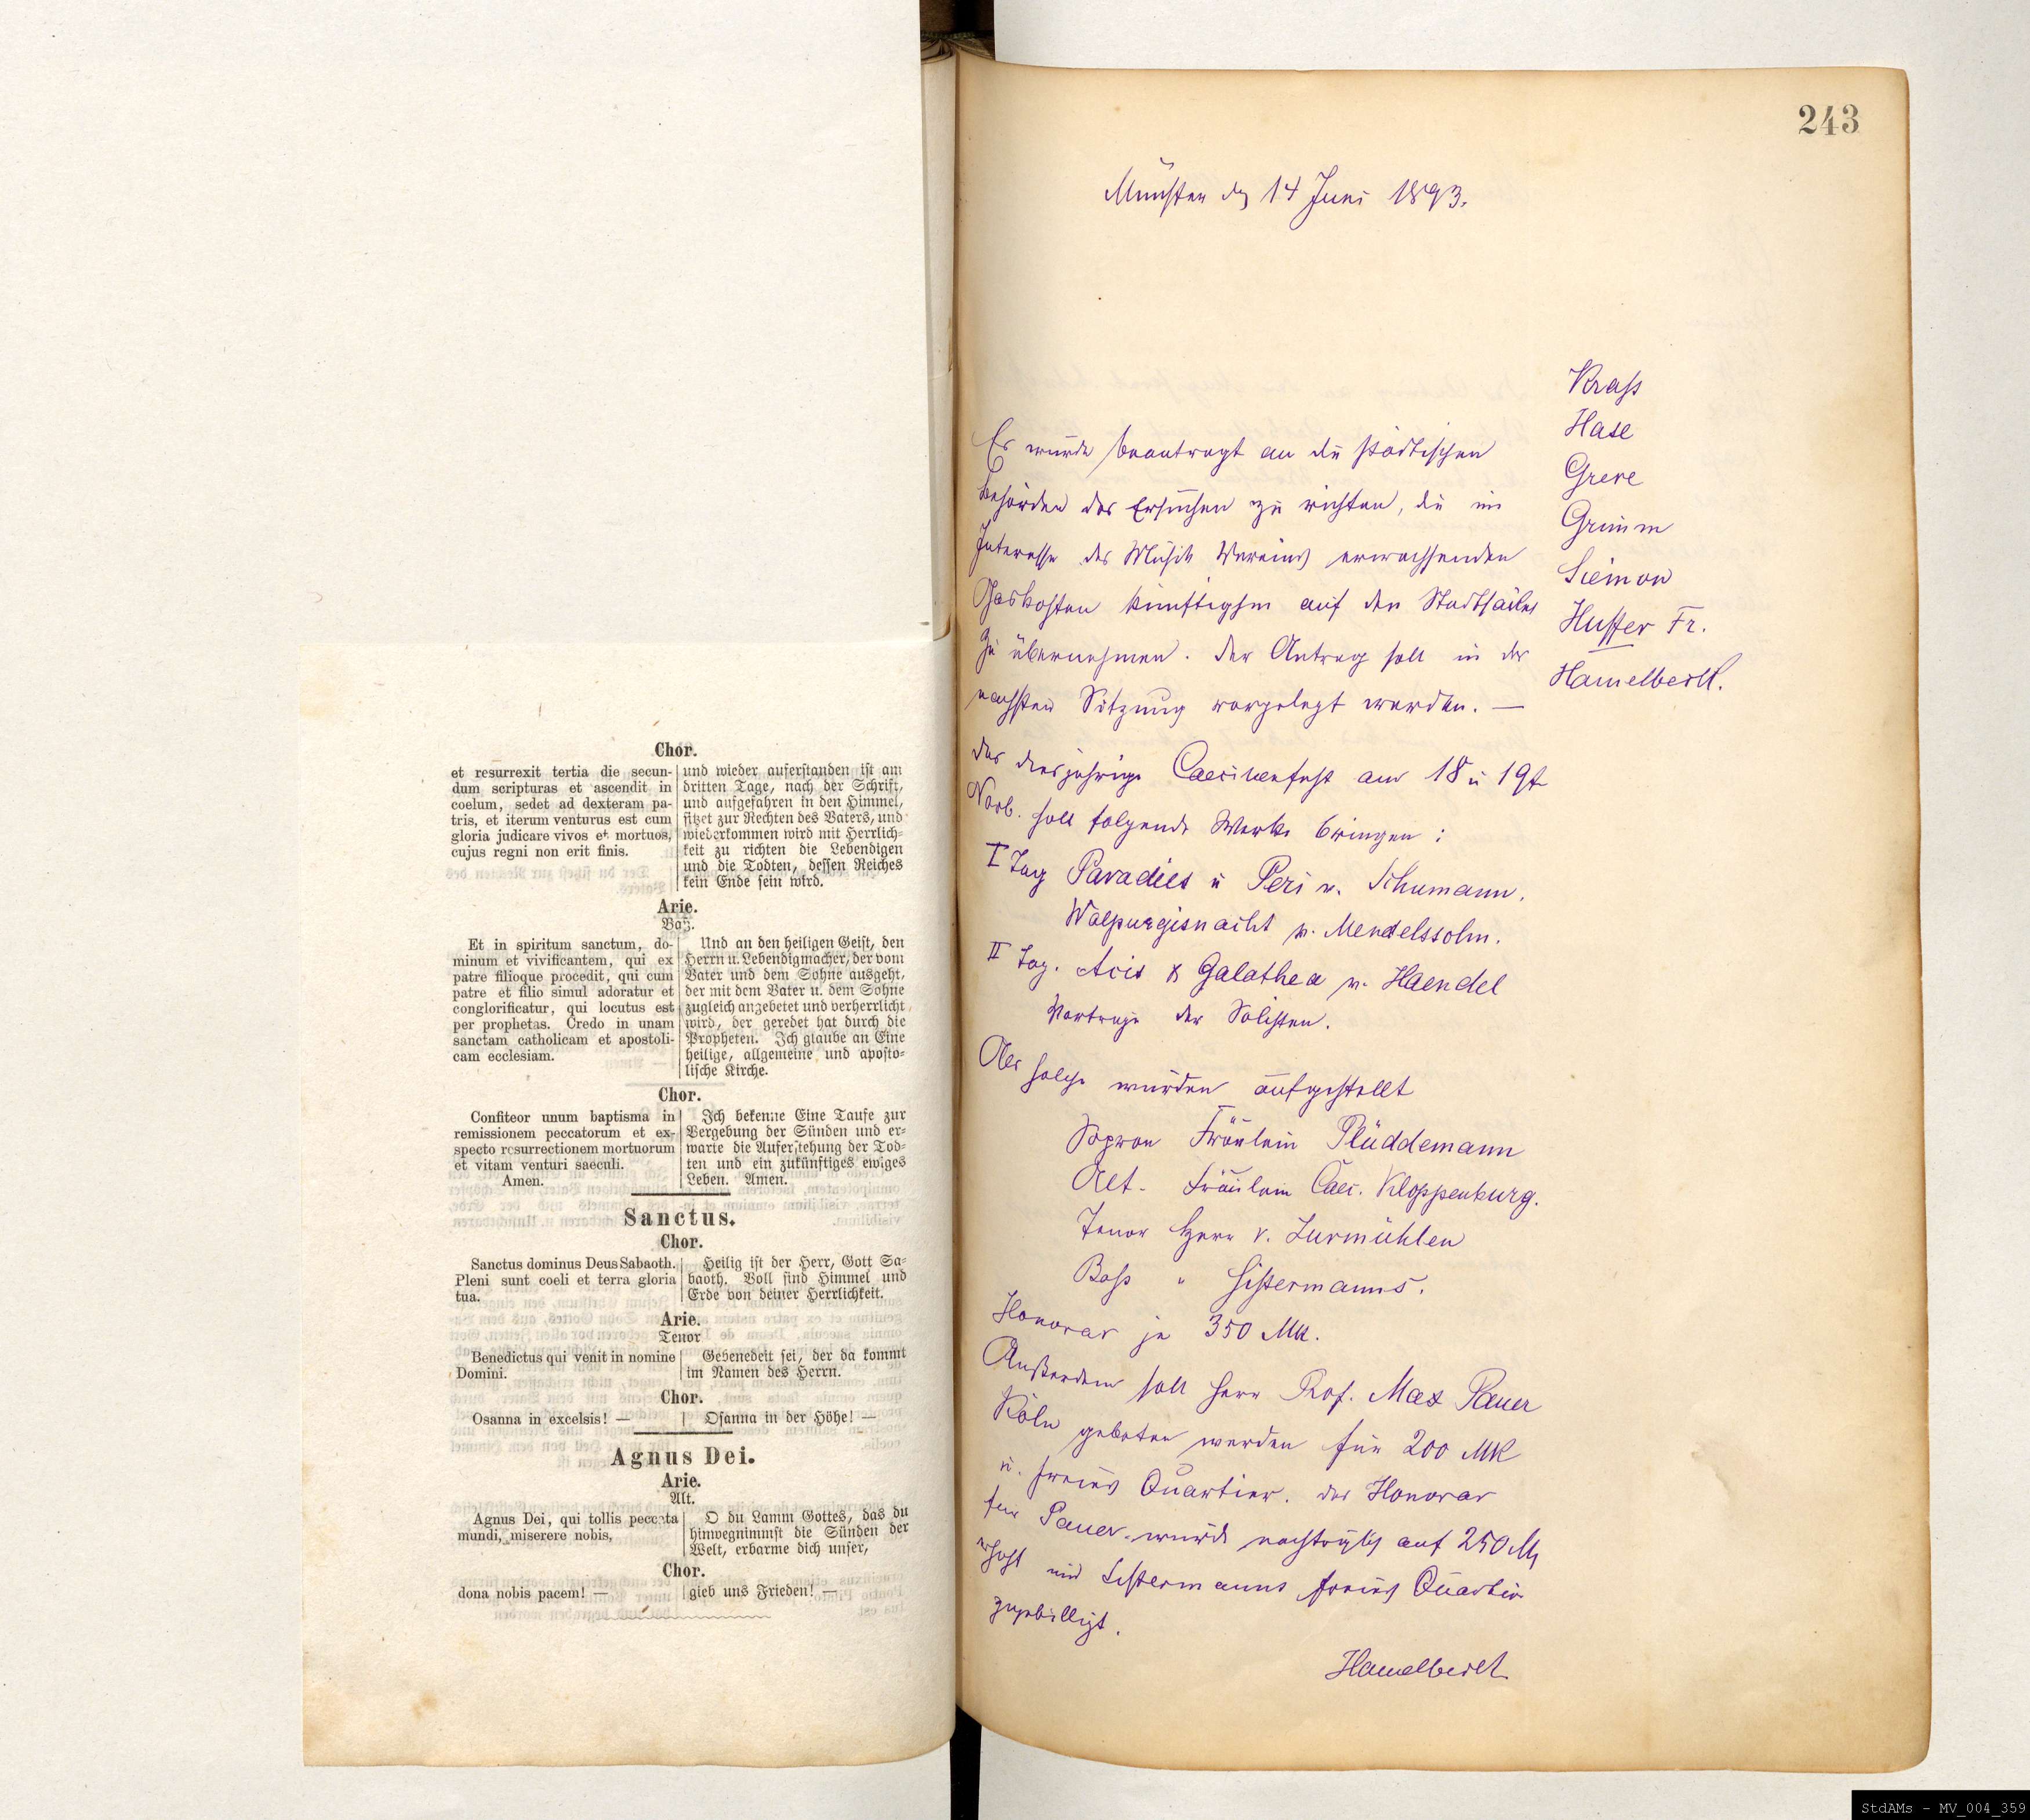 Chor.
et resurrexit tertia die secun-
dum scripturas et ascendit in
coelum, sedet ad dexteram pa-
tris, et iterum venturus est cum
gloria judicare vivos et mortuos,
cujus regni non erit finis.
und wieder auferstanden ist am
dritten Tage, nach der Schrift,
und aufgefahren in den Himmel,
sitzet zur Rechten des Vaters, und
wiederkommen wird mit Herrlich-
keit zu richten die Lebendigen
und die Todten, dessen Reiches
kein Ende sein wird.
Arie.
Baß.
Et in spiritum sanctum, do-
minum et vivificantem, qui ex
patre filioque procedit, qui cum
patre et filio simul adoratur et
conglorificatur, qui locutus est
per prophetas. Credo in unam
sanctam catholicam et apostoli-
cam ecclesiam.
Und an den heiligen Geist, den
Herrn u. Lebendigmacher, der vom
Vater und dem Sohne ausgeht,
der mit dem Vater u. dem Sohne
zugleich angebetet und verherrlicht
wird, der geredet hat durch die
Propheten. Ich glaube an Eine
heilige, allgemeine und aposto-
lische Kirche.
Chor.
Confiteor unum baptisma in
remissionem peccatorum et ex-
specto resurrectionem mortuorum
et vitam venturi saeculi.
Amen.
Ich bekenne Eine Taufe zur
Vergebung der Sünden und er-
warte die Auferstehung der Tod-
ten und ein zukünftiges ewiges
Leben. Amen.
Sanctus.
Chor.
Sanctus dominus Deus Sabaoth.
Pleni sunt coeli et terra gloria
tua.
Heilig ist der Herr, Gott Sa-
baoth. Voll sind Himmel und
Erde von deiner Herrlichkeit.
Arie.
Tenor
Benedictus qui venit in nomine
Domini.
Gebenedeit sei, der da kommt
im Namen des Herrn.
Chor.
Osanna in excelsis! —
Osanna in der Höhe! —
Agnus Dei.
Arie.
Alt.
Agnus Dei, qui tollis peccata
mundi, miserere nobis,
O du Lamm Gottes, das du
hinwegnimmst die Sünden der
Welt, erbarme dich unser,
Chor.
dona nobis pacem! —
gieb uns Frieden! —
243
Münster den 14 Juni 1893.
Krass
Hase
Greve
Grimm
Siemon
Huffer Fr.
Hamelbeck.
Es wurde beantragt an die städtischen
Behörden das Ersuchen zu richten, die im
Interesse des Musik Vereins erwachsenden
Gaskosten künftighin auf den Stadtsäckel
zu übernehmen. Der Antrag soll in der
nächsten Sitzung vorgelegt werden. —
Das diesjährige Caecilienfest am 18 u 19t
Novb. soll folgende Werke bringen:
I Tag Paradies u Peri v. Schumann.
Walpurgisnacht v. Mendelssohn.
II Tag. Acis & Galathea v. Haendel
Vorträge der Solisten.
Als solche wurden aufgestellt
Sopran Fräulein Plüddemann
Alt - Fräulein Caec. Kloppenburg.
Tenor Herr v. Zurmühlen
Bass " Sistermanns.
Honorar je 350 Mk.
Außerdem soll Herr Prof. Max Pauer
Köln gebeten werden für 200 MK
u. freies Quartier. das Honorar
für Pauer wurde nachträglich auf 250 M
erhöht und Sistermanns freies Quartier
zugebilligt.
Hamelbeck
StdAMs - MV_004_359